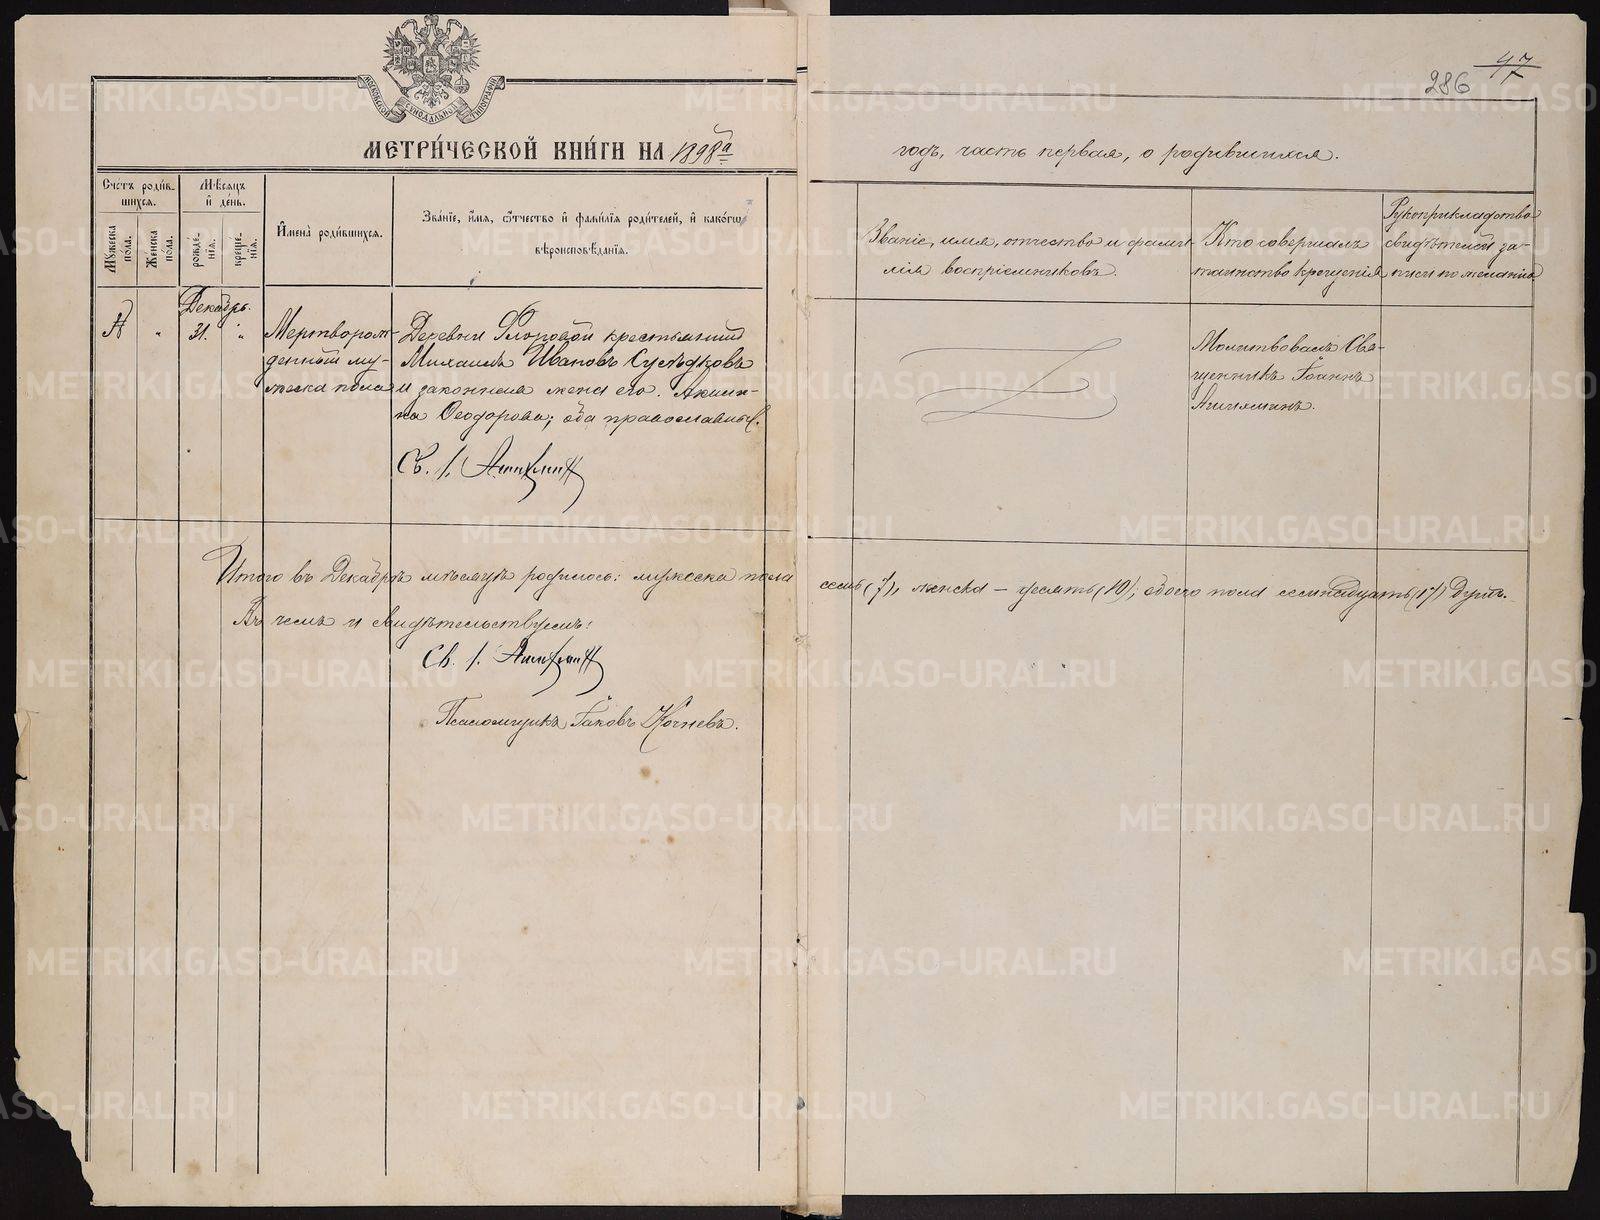 47
286
МОСКОВСКОЙ СѴНОДАЛЬНОЙ ТИПОГРАФІИ
МЕТРИ́ЧЕСКОЙ КНИ́ГИ НА 1898й
годъ, часть первая, о родившихся.
Сче́тъ роди́в-
шихся.
Мѹ́жеска по́ла.
Же́нска по́ла.
Мѣ́сяцъ
и҆ де́нь.
рожде́-
нїѧ.
креще́-
нїѧ.
И҆мена̀ роди́вшихся.
Зва́нїе, и҆́мѧ, ѻ҆́тчество и҆ фами́лїѧ роди́телей, и҆ како́гѡ
вѣроисповѣ́данїѧ.
Званіе, имя, отчество и фами-
лія воспріемниковъ.
Кто совершалъ
таинство крещенія
Рукоприкладство
свидѣтелей за-
писи по желанію.
Декабрь.
31.
Мертворож-
денный му-
жеска пола
Деревни Флоровой крестьянинъ
Михаилъ Ивановъ Сусѣдковъ
и законная жена его Акили-
на Ѳеодорова; оба православные.
Св. І.
Молитвовалъ Свя-
щенникъ Іоаннъ
Итого въ Декабрѣ мѣсяцѣ родилось: мужеска пола семь (7), женска – десять (10); обоего пола семнадцать (17) душъ.
Въ чемъ и свидѣтельствуемъ:
Св. І.
Псаломщикъ Іаковъ Кочневъ.
METRIKI.GASO-URAL.RU